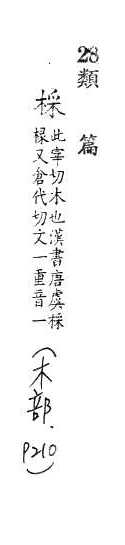 28類 篇
採 此宰切木也漢書唐虞採
椽又倉代切文一重音一
(木部.
P210)